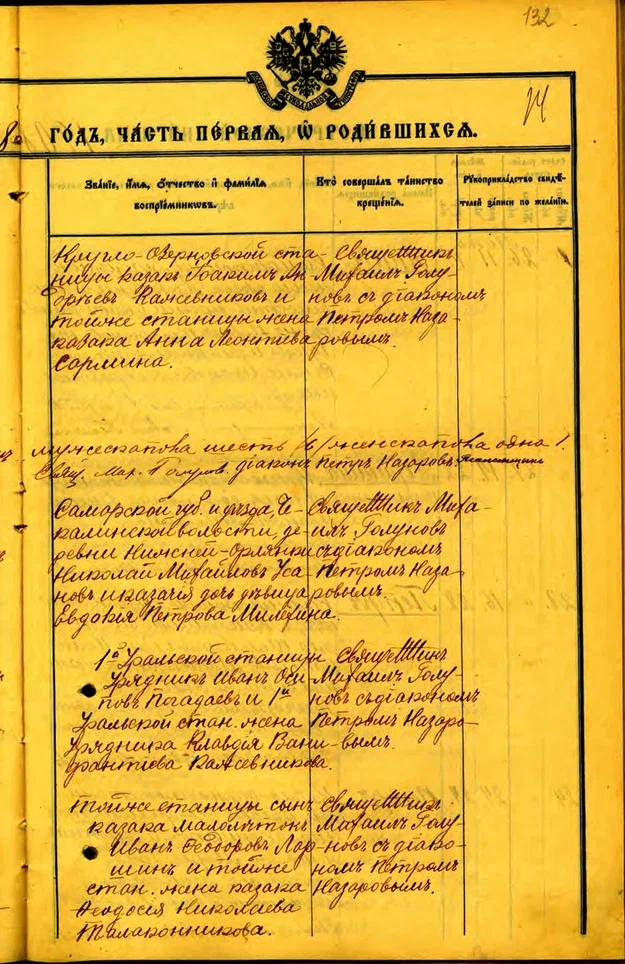 132
14
8
ГОДЪ, ЧАСТЬ ПЕРВАЯ, Ѿ РОДИВШИХСЯ.
Званіе, имя, отчество и фамилія
воспріемниковъ.
Кто совершалъ таинство
крещенія.
Рукоприкладство свидѣ-
телей записи по желанію.
Кругло-Озерновской ста-
ницы казакъ Іоакимъ Ан-
Кажевниковъ и
тойже станицы жена
казака Анна Леонтіева
Сармина.
Священникъ
Михаилъ Голу-
новъ съ діакономъ
Петромъ Наза-
ровымъ.
мужескапола шесть /6/ женскапола одна 1.
Свящ. Мих. Голунов. діаконъ Петръ Назаровъ.
Самарской губ. и уѣзда, Че-
калинской волости, де-
ревни Нижней-Орлянки
Николай Михайловъ Уса-
новъ и казачія дочь дѣвица
Евдокія Петрова Милёхина.
Священникъ Миха-
илъ Голуновъ
съ діакономъ
Петромъ Наза-
ровымъ.
1й Уральской станицы
Урядникъ Иванъ Оси-
повъ Погадаевъ и 1й
Уральской стан. жена
Урядника Клавдія Вани-
фантіева Кажевникова.
Священникъ
Михаилъ Голу-
новъ съ діакономъ
Петромъ Назаро-
вымъ.
Тойже станицы сынъ
казака малолѣтокъ
Иванъ Ѳеодоровъ Лар-
шинъ и тойже
стан. жена казака
Ѳеодосія Николаева
Талаконникова.
Священникъ
Михаилъ Голу-
новъ съ діако-
номъ Петромъ
Назаровымъ.